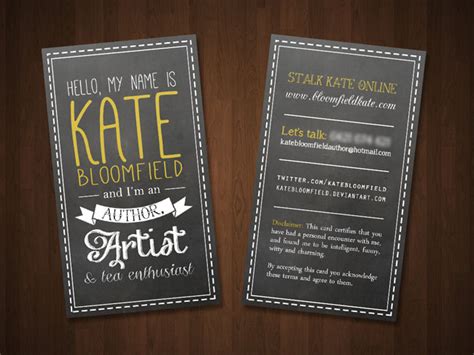 HELLO, MY NAME IS
KATE
BLOOMFIELD
and I'm an
AUTHOR,
Artist
& tea enthusiast
STALK KATE ONLINE
www.bloomfieldkate.com
Let's talk:
katebloomfieldauthor@hotmail.com
TWITTER.COM/KATEBLOOMFIELD
KATEBLOOMFIELD.DEVIANTART.COM
Disclaimer: This card certifies that you
have had a personal encounter with me,
and found me to be intelligent, witty,
charming, infinitely interesting, and
devilishly attractive.
By accepting this card you acknowledge
these terms and agree to them.